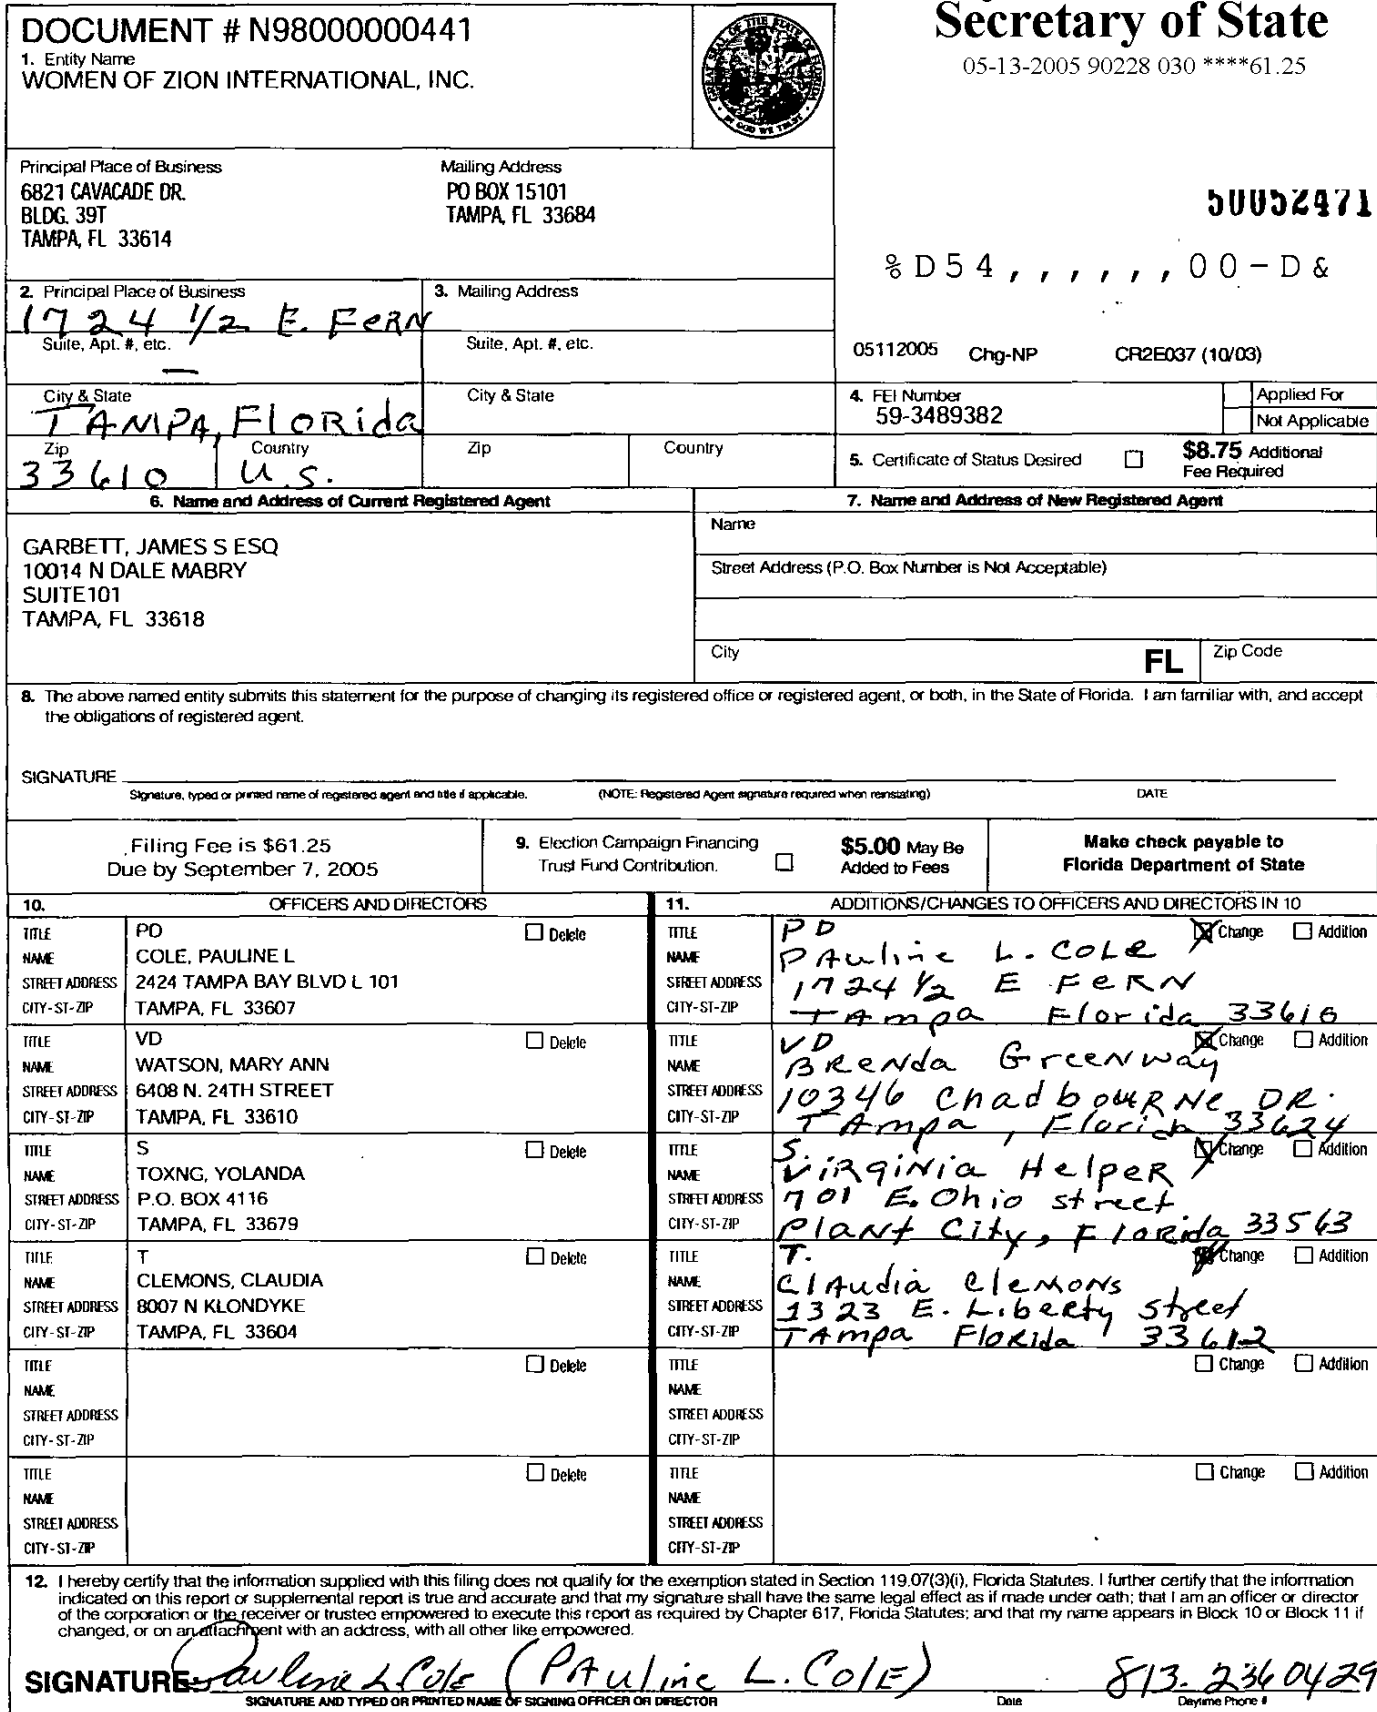 Secretary of State
05-13-2005 90228 030 ****61.25
DOCUMENT # N98000000441
1. Entity Name
WOMEN OF ZION INTERNATIONAL, INC.
GREAT SEAL OF THE STATE OF FLORIDA
IN GOD WE TRUST
Principal Place of Business
6821 CAVACADE DR.
BLDG. 39T
TAMPA, FL 33614
Mailing Address
PO BOX 15101
TAMPA, FL 33684
50052471
%D54,,,,,,00-D&
2. Principal Place of Business
1724 1/2 E. FERN
Suite, Apt. #, etc.
—
City & State
TAMPA, Florida
Zip
33610
Country
U.S.
3. Mailing Address
Suite, Apt. #, etc.
City & State
Zip
Country
05112005 Chg-NP CR2E037 (10/03)
4. FEI Number
59-3489382
Applied For
Not Applicable
5. Certificate of Status Desired
$8.75 Additional
Fee Required
6. Name and Address of Current Registered Agent
GARBETT, JAMES S ESQ
10014 N DALE MABRY
SUITE101
TAMPA, FL 33618
7. Name and Address of New Registered Agent
Name
Street Address (P.O. Box Number is Not Acceptable)
City
FL
Zip Code
8. The above named entity submits this statement for the purpose of changing its registered office or registered agent, or both, in the State of Florida. I am familiar with, and accept
the obligations of registered agent.
SIGNATURE
Signature, typed or printed name of registered agent and title if applicable. (NOTE: Registered Agent signature required when reinstating) DATE
Filing Fee is $61.25
Due by September 7, 2005
9. Election Campaign Financing
Trust Fund Contribution.
$5.00 May Be
Added to Fees
Make check payable to
Florida Department of State
10. OFFICERS AND DIRECTORS
TITLE PD Delete
NAME COLE, PAULINE L
STREET ADDRESS 2424 TAMPA BAY BLVD L 101
CITY-ST-ZIP TAMPA, FL 33607
TITLE VD Delete
NAME WATSON, MARY ANN
STREET ADDRESS 6408 N. 24TH STREET
CITY-ST-ZIP TAMPA, FL 33610
TITLE S Delete
NAME TOXNG, YOLANDA
STREET ADDRESS P.O. BOX 4116
CITY-ST-ZIP TAMPA, FL 33679
TITLE T Delete
NAME CLEMONS, CLAUDIA
STREET ADDRESS 8007 N KLONDYKE
CITY-ST-ZIP TAMPA, FL 33604
TITLE Delete
NAME
STREET ADDRESS
CITY-ST-ZIP
TITLE Delete
NAME
STREET ADDRESS
CITY-ST-ZIP
11. ADDITIONS/CHANGES TO OFFICERS AND DIRECTORS IN 10
TITLE PD Change Addition
NAME PAuline L. COLe
STREET ADDRESS 1724 1/2 E FeRN
CITY-ST-ZIP TAmpa Florida 33610
TITLE VD Change Addition
NAME BRenda GreenwAy
STREET ADDRESS 10346 ChadbouRNe DR.
CITY-ST-ZIP TAmpa, Florida 33624
TITLE S. Change Addition
NAME ViRginia HelpeR
STREET ADDRESS 701 E. Ohio street
CITY-ST-ZIP PlaNt City, Florida 33563
TITLE T. Change Addition
NAME ClAudia CleMONS
STREET ADDRESS 1323 E. Liberty street
CITY-ST-ZIP TAmpa FloRida 33612
TITLE Change Addition
NAME
STREET ADDRESS
CITY-ST-ZIP
TITLE Change Addition
NAME
STREET ADDRESS
CITY-ST-ZIP
12. I hereby certify that the information supplied with this filing does not qualify for the exemption stated in Section 119.07(3)(i), Florida Statutes. I further certify that the information
indicated on this report or supplemental report is true and accurate and that my signature shall have the same legal effect as if made under oath; that I am an officer or director
of the corporation or the receiver or trustee empowered to execute this report as required by Chapter 617, Florida Statutes; and that my name appears in Block 10 or Block 11 if
changed, or on an attachment with an address, with all other like empowered.
SIGNATURE: Pauline L Cole (PAuline L. COlE) 813-2360429
SIGNATURE AND TYPED OR PRINTED NAME OF SIGNING OFFICER OR DIRECTOR Date Daytime Phone #